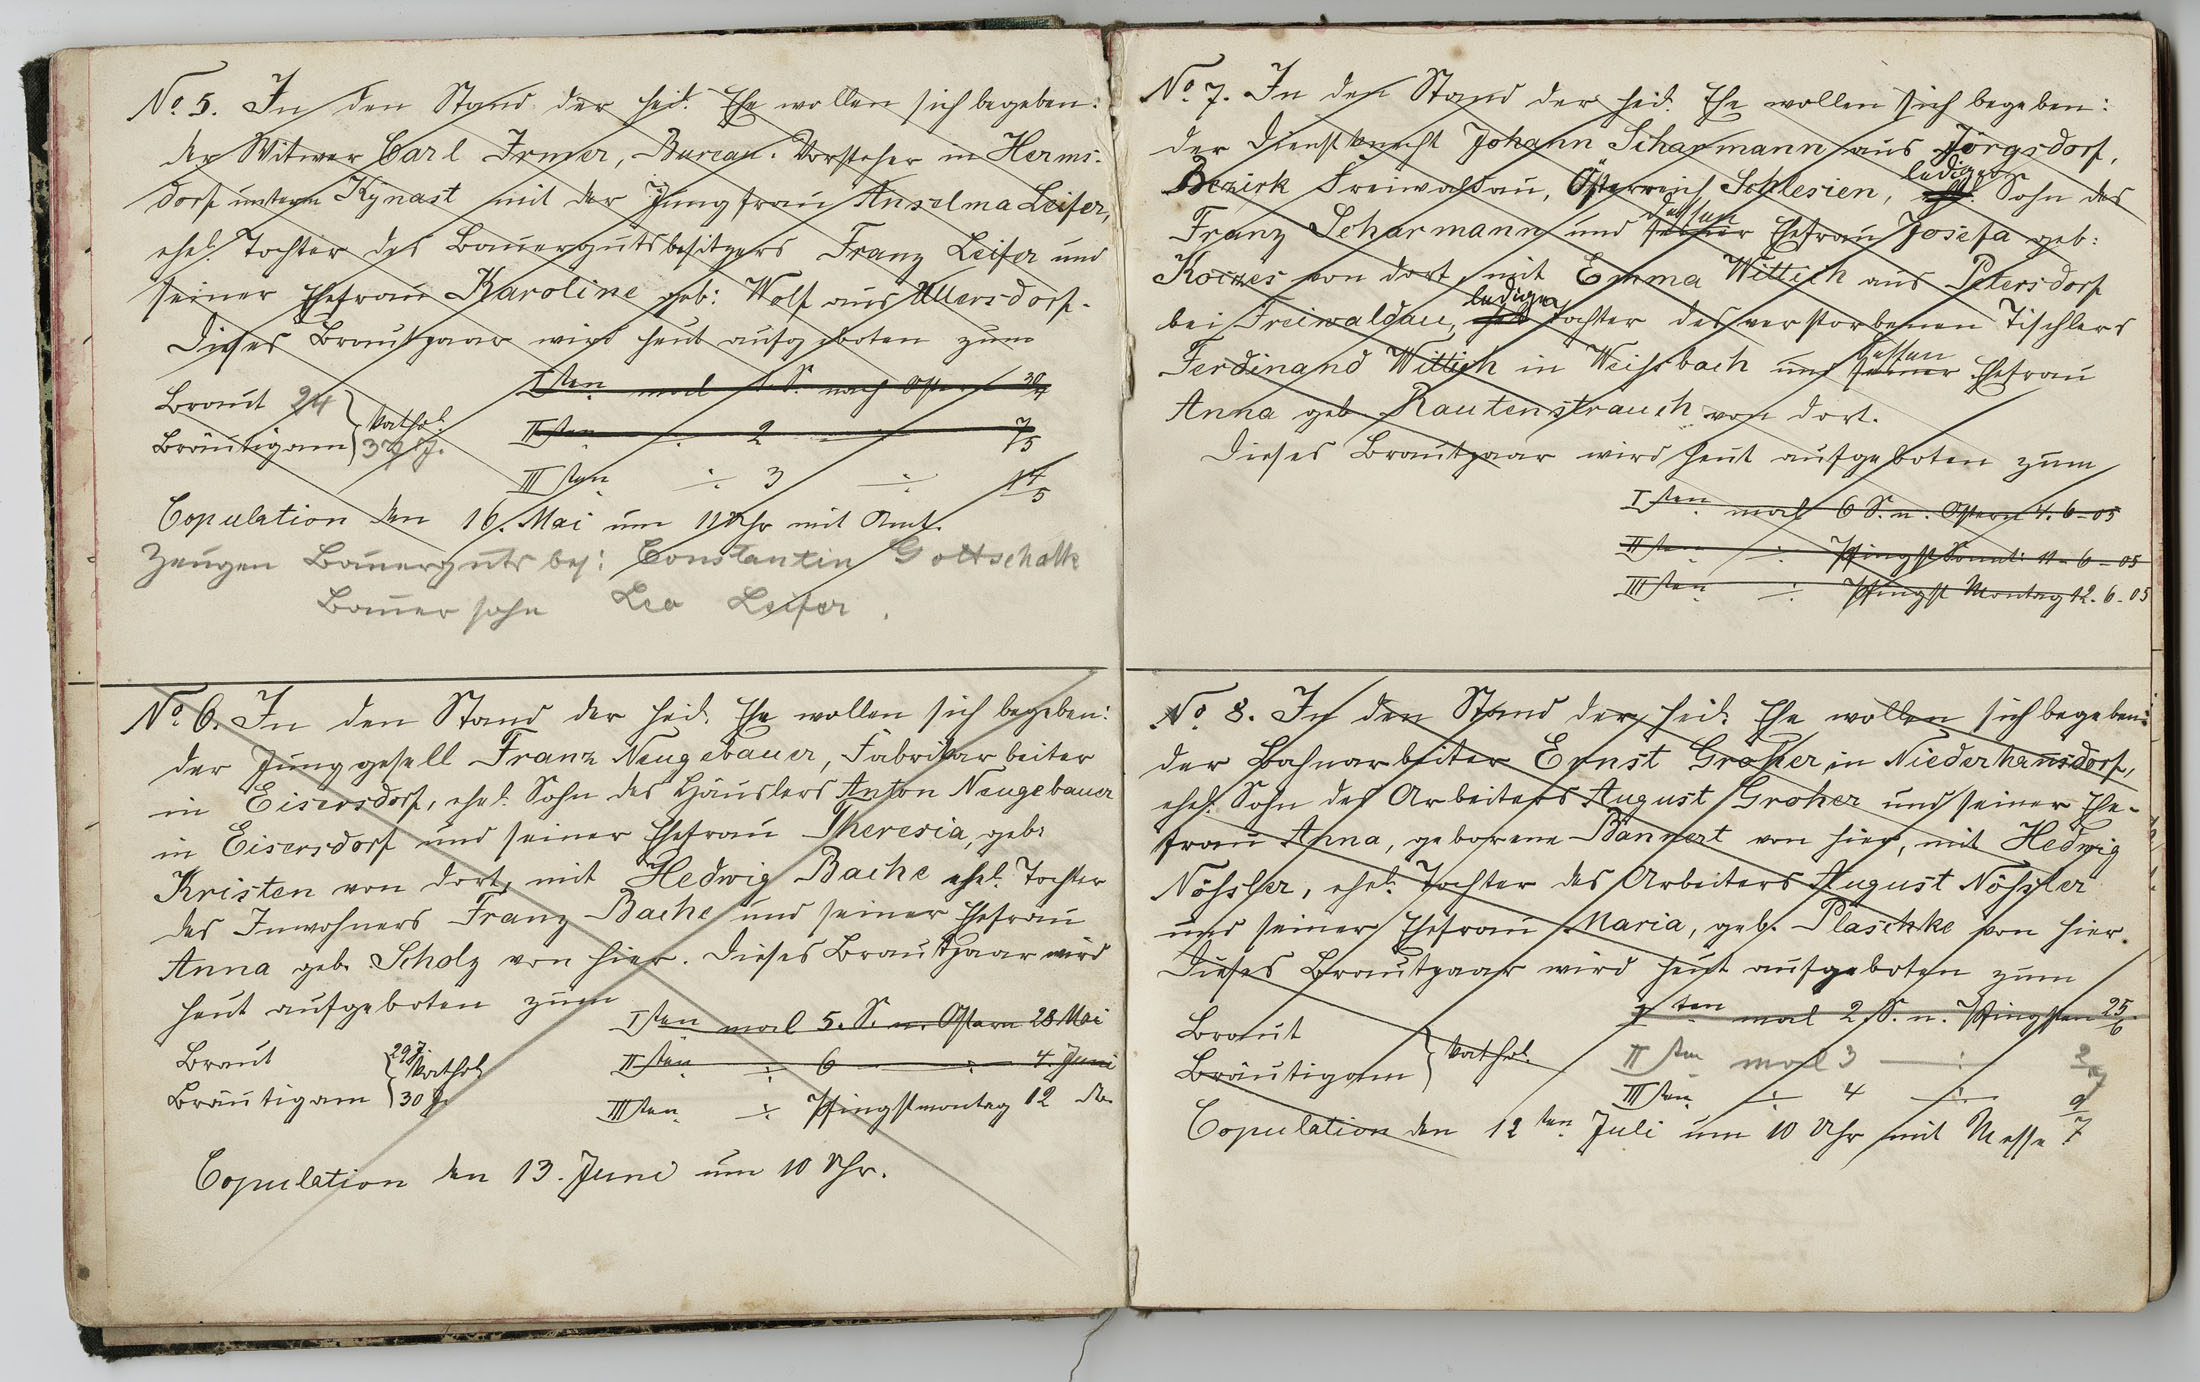 No 5. In den Stand der heil. Ehe wollen sich begeben:
der Witwer Carl Irmer, Bureau-Vorsteher in Herms-
dorf unterm Kynast mit der Jungfrau Anselma Leifer,
ehel. Tochter des Bauergutsbesitzers Franz Leifer und
seiner Ehefrau Karoline geb: Wolf aus Ullersdorf.
Dieses Brautpaar wird heut aufgeboten zum
Isten mal 1. S. nach Ostern 30/4
Braut 24
kathol.
Bräutigam 37 J.
IIten ÷ 2 ÷ 7/5
IIIsten ÷ 3 ÷ 14/5
Copulation den 16. Mai um 11 Uhr mit Amt.
Zeugen Bauerguts bes: Constantin Gottschalk
Bauersohn Leo Leifer.
No 6. In den Stand der heil. Ehe wollen sich begeben:
der Junggesell Franz Neugebauer, Fabrikarbeiter
in Eisersdorf, ehel. Sohn des Häuslers Anton Neugebauer
in Eisersdorf und seiner Ehefrau Theresia, geb:
Kristen von dort, mit Hedwig Bache ehel. Tochter
des Inwohners Franz Bache und seiner Ehefrau
Anna geb. Scholz von hier. Dieses Brautpaar wird
heut aufgeboten zum
Isten mal 5. S. n. Ostern 28 Mai
Braut 29 J.
kathol.
IIsten ÷ 6 ÷ 4 Juni
Bräutigam 30 J.
IIIten ÷ Pfingstmontag 12
Copulation den 13. Juni um 10 Uhr.
No. 7. In den Stand der heil. Ehe wollen sich begeben:
der Dienstknecht Johann Scharmann aus Jörgsdorf,
Bezirk Freiwaldau, Österreich Schlesien, lediger Sohn des
Franz Scharmann und seiner dessen Ehefrau Josefa geb:
von dort, mit Emma Wittich aus Petersdorf
bei Freiwaldau, ehel. ledige Tochter des verstorbenen Tischlers
Ferdinand Wittich in Weißbach und seiner dessen Ehefrau
Anna geb. Rautenstrauch von dort.
Dieses Brautpaar wird heut aufgeboten zum
Isten mal 6 S. n. Ostern 4. 6 - 05
IIsten ÷ Pfingst Sonnt: 11 - 6 - 05
IIIsten ÷ Pfingst Montag 12. 6 - 05
No 8. In den Stand der heil. Ehe wollen sich begeben:
der Bahnarbeiter Ernst Groher in Niederhannsdorf,
ehel. Sohn des Arbeiters August Groher und seiner Ehe-
frau Anna, geborene Bannert von hier, mit Hedwig
Nößler, ehel. Tochter des Arbeiters August Nößler
und seiner Ehefrau Maria, geb. Plaschke von hier.
Dieses Brautpaar wird heut aufgeboten zum
Iten mal 2. S. n. Pfingsten 25/6.
Braut
kathol.
Bräutigam
IIten mal 3 ÷ 2/7
IIIten ÷ 4 ÷ 9/7
Copulation den 12ten Juli um 10 Uhr mit Messe.